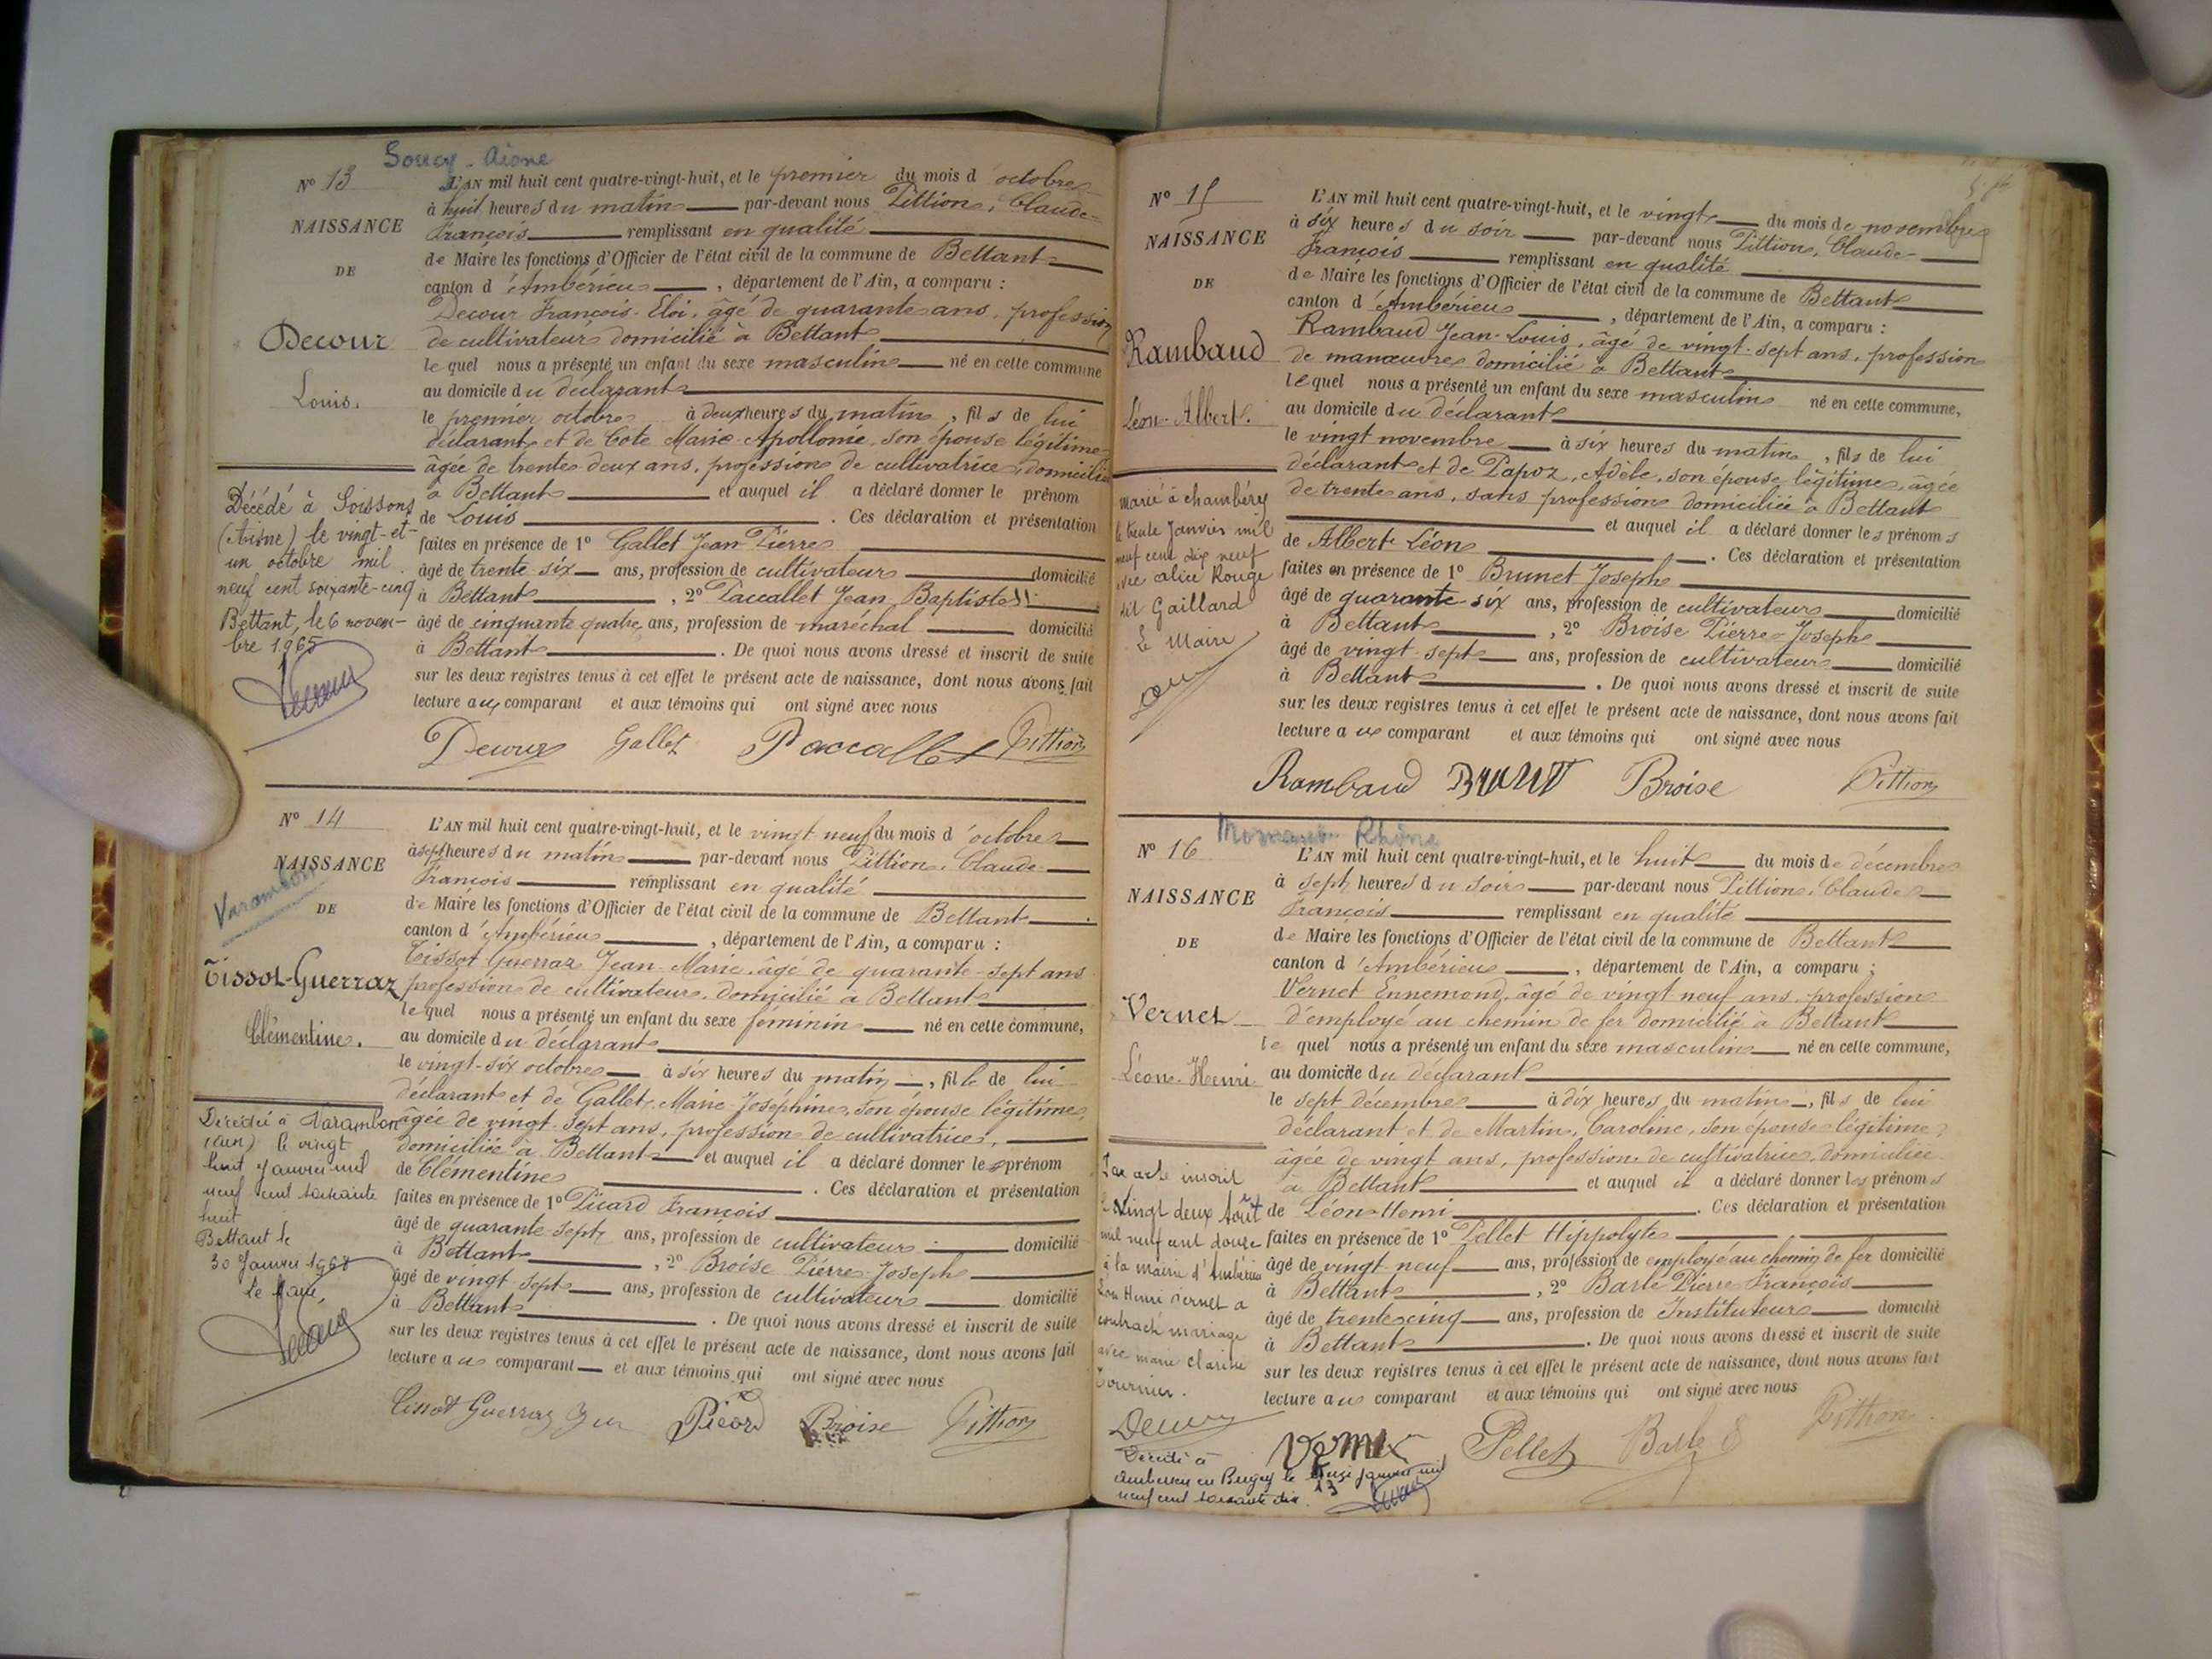 Soucy - Aisne
N° 13
NAISSANCE
DE
Decour
Louis.
L'AN mil huit cent quatre-vingt-huit, et le premier du mois d'octobre
à huit heures du matin par-devant nous Pittion, Claude-
François remplissant en qualité
de Maire les fonctions d'Officier de l'état civil de la commune de Bettant
canton d'Ambérieu, département de l'Ain, a comparu :
Decour François-Eloi, âgé de quarante ans, profession
de cultivateur domicilié à Bettant
lequel nous a présenté un enfant du sexe masculin né en cette commune
au domicile du déclarant
le premier octobre à deux heures du matin, fils de lui
déclarant et de Cote Marie-Apollonie, son épouse légitime
âgée de trente-deux ans, profession de cultivatrice, domiciliée
à Bettant et auquel il a déclaré donner le prénom
de Louis. Ces déclaration et présentation
faites en présence de 1° Gallet Jean-Pierre
âgé de trente-six ans, profession de cultivateur domicilié
à Bettant, 2° Paccallet Jean Baptiste
âgé de cinquante quatre ans, profession de maréchal domicilié
à Bettant. De quoi nous avons dressé et inscrit de suite
sur les deux registres tenus à cet effet le présent acte de naissance, dont nous avons fait
lecture aux comparant et aux témoins qui ont signé avec nous
Decour Gallet Paccallet Pittion
Décédé à Soissons
(Aisne) le vingt-et-
un octobre mil
neuf cent soixante-cinq
Bettant, le 6 novem-
bre 1965
N° 14
NAISSANCE
Varambon
DE
Tissot-Guerraz
Clémentine.
L'AN mil huit cent quatre-vingt-huit, et le vingt neuf du mois d'octobre
à sept heures du matin par-devant nous Pittion, Claude-
François remplissant en qualité
de Maire les fonctions d'Officier de l'état civil de la commune de Bettant
canton d'Ambérieu, département de l'Ain, a comparu :
Tissot-Guerraz Jean-Marie, âgé de quarante-sept ans
profession de cultivateur, domicilié à Bettant
lequel nous a présenté un enfant du sexe féminin né en cette commune,
au domicile du déclarant
le vingt-six octobre à six heures du matin, fille de lui
déclarant et de Gallet, Marie-Joséphine, son épouse légitime,
âgée de vingt-sept ans, profession de cultivatrice,
domiciliée à Bettant et auquel il a déclaré donner le prénom
de Clémentine. Ces déclaration et présentation
faites en présence de 1° Picard François
âgé de quarante-sept ans, profession de cultivateur domicilié
à Bettant, 2° Broise Pierre-Joseph
âgé de vingt-sept ans, profession de cultivateur domicilié
à Bettant. De quoi nous avons dressé et inscrit de suite
sur les deux registres tenus à cet effet le présent acte de naissance, dont nous avons fait
lecture aux comparant et aux témoins qui ont signé avec nous
Tissot Guerraz Picard Broise Pittion
Décédée à Varambon
(Ain) le vingt
huit janvier mil
neuf cent soixante
huit
Bettant le
30 Janvier 1968
le Maire,
N° 15
NAISSANCE
DE
Rambaud
Léon-Albert.
L'AN mil huit cent quatre-vingt-huit, et le vingt du mois de novembre
à six heures du soir par-devant nous Pittion, Claude-
François remplissant en qualité
de Maire les fonctions d'Officier de l'état civil de la commune de Bettant
canton d'Ambérieu, département de l'Ain, a comparu :
Rambaud Jean-Louis, âgé de vingt-sept ans, profession
de manœuvre domicilié à Bettant
lequel nous a présenté un enfant du sexe masculin né en cette commune,
au domicile du déclarant
le vingt novembre à six heures du matin, fils de lui
déclarant et de Papoz, Adèle, son épouse légitime, âgée
de trente ans, sans profession domiciliée à Bettant
et auquel il a déclaré donner les prénoms
de Albert Léon. Ces déclaration et présentation
faites en présence de 1° Brunet Joseph
âgé de quarante-six ans, profession de cultivateur domicilié
à Bettant, 2° Broise Pierre-Joseph
âgé de vingt-sept ans, profession de cultivateur domicilié
à Bettant. De quoi nous avons dressé et inscrit de suite
sur les deux registres tenus à cet effet le présent acte de naissance, dont nous avons fait
lecture aux comparant et aux témoins qui ont signé avec nous
Rambaud Brunet Broise Pittion
Marié à Chambéry
le trente Janvier mil
neuf cent dix neuf
avec Alice Rouge
dit Gaillard
Le Maire
N° 16
Rhône
NAISSANCE
DE
Vernet
Léon-Henri
L'AN mil huit cent quatre-vingt-huit, et le huit du mois de décembre
à sept heures du soir par-devant nous Pittion, Claude
François remplissant en qualité
de Maire les fonctions d'Officier de l'état civil de la commune de Bettant
canton d'Ambérieu, département de l'Ain, a comparu :
Vernet Ennemond, âgé de vingt-neuf ans, profession
d'employé au chemin de fer domicilié à Bettant
lequel nous a présenté un enfant du sexe masculin né en cette commune,
au domicile du déclarant
le sept décembre à dix heures du matin, fils de lui
déclarant et de Martin, Caroline, son épouse légitime,
âgée de vingt ans, profession de cultivatrice, domiciliée
à Bettant et auquel il a déclaré donner les prénoms
de Léon-Henri. Ces déclaration et présentation
faites en présence de 1° Pellet Hippolyte
âgé de vingt neuf ans, profession de employé au chemin de fer domicilié
à Bettant, 2° Barle Pierre François
âgé de trente cinq ans, profession de Instituteur domicilié
à Bettant. De quoi nous avons dressé et inscrit de suite
sur les deux registres tenus à cet effet le présent acte de naissance, dont nous avons fait
lecture aux comparant et aux témoins qui ont signé avec nous
Vernet Pellet Barle Pittion
Par acte inscrit
le vingt deux Août
mil neuf cent douze
à la mairie d'Ambérieu
Léon Henri Vernet a
contracté mariage
avec Marie Clarisse
Tournier.
Decour
Décédé à
Ambérieu en Bugey le janvier mil
13
neuf cent soixante dix.